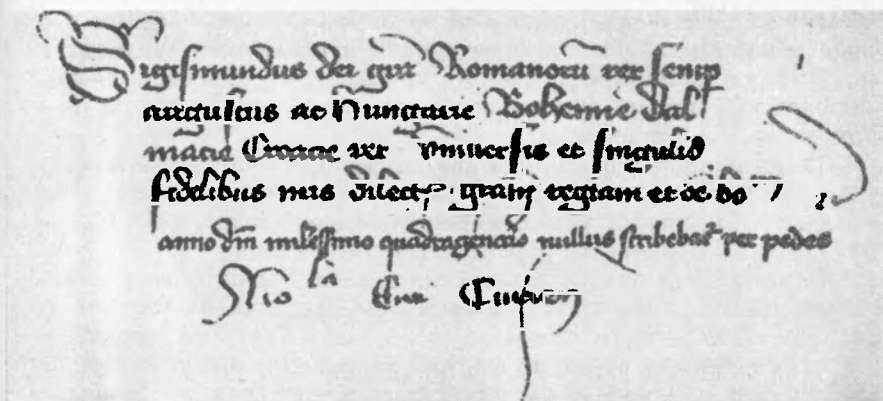 Sigismundus dei gra Romanorū rex semp
augustus ac hungarie Bohemie dal
macie Croacie rex Vniversis et singulis
fidelibus nris dilect gram regiam et oe bo
anno dm milessimo quadragentesimo nullus scribebat per pedes